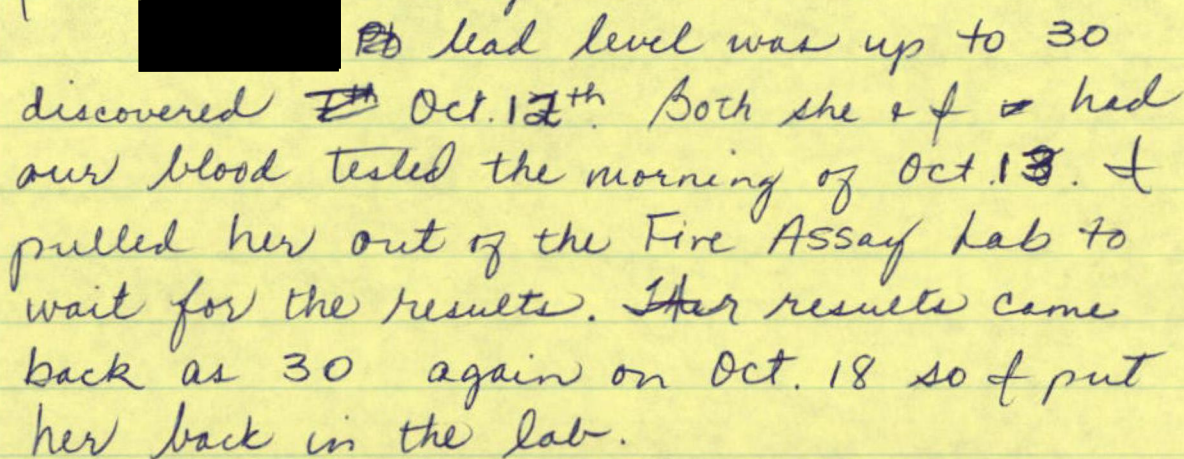 lead level was up to 30
discovered Oct. 12th. Both she & I had
our blood tested the morning of Oct. 13. I
pulled her out of the Fire Assay Lab to
wait for the results. Her results came
back as 30 again on Oct. 18 so I put
her back in the lab.